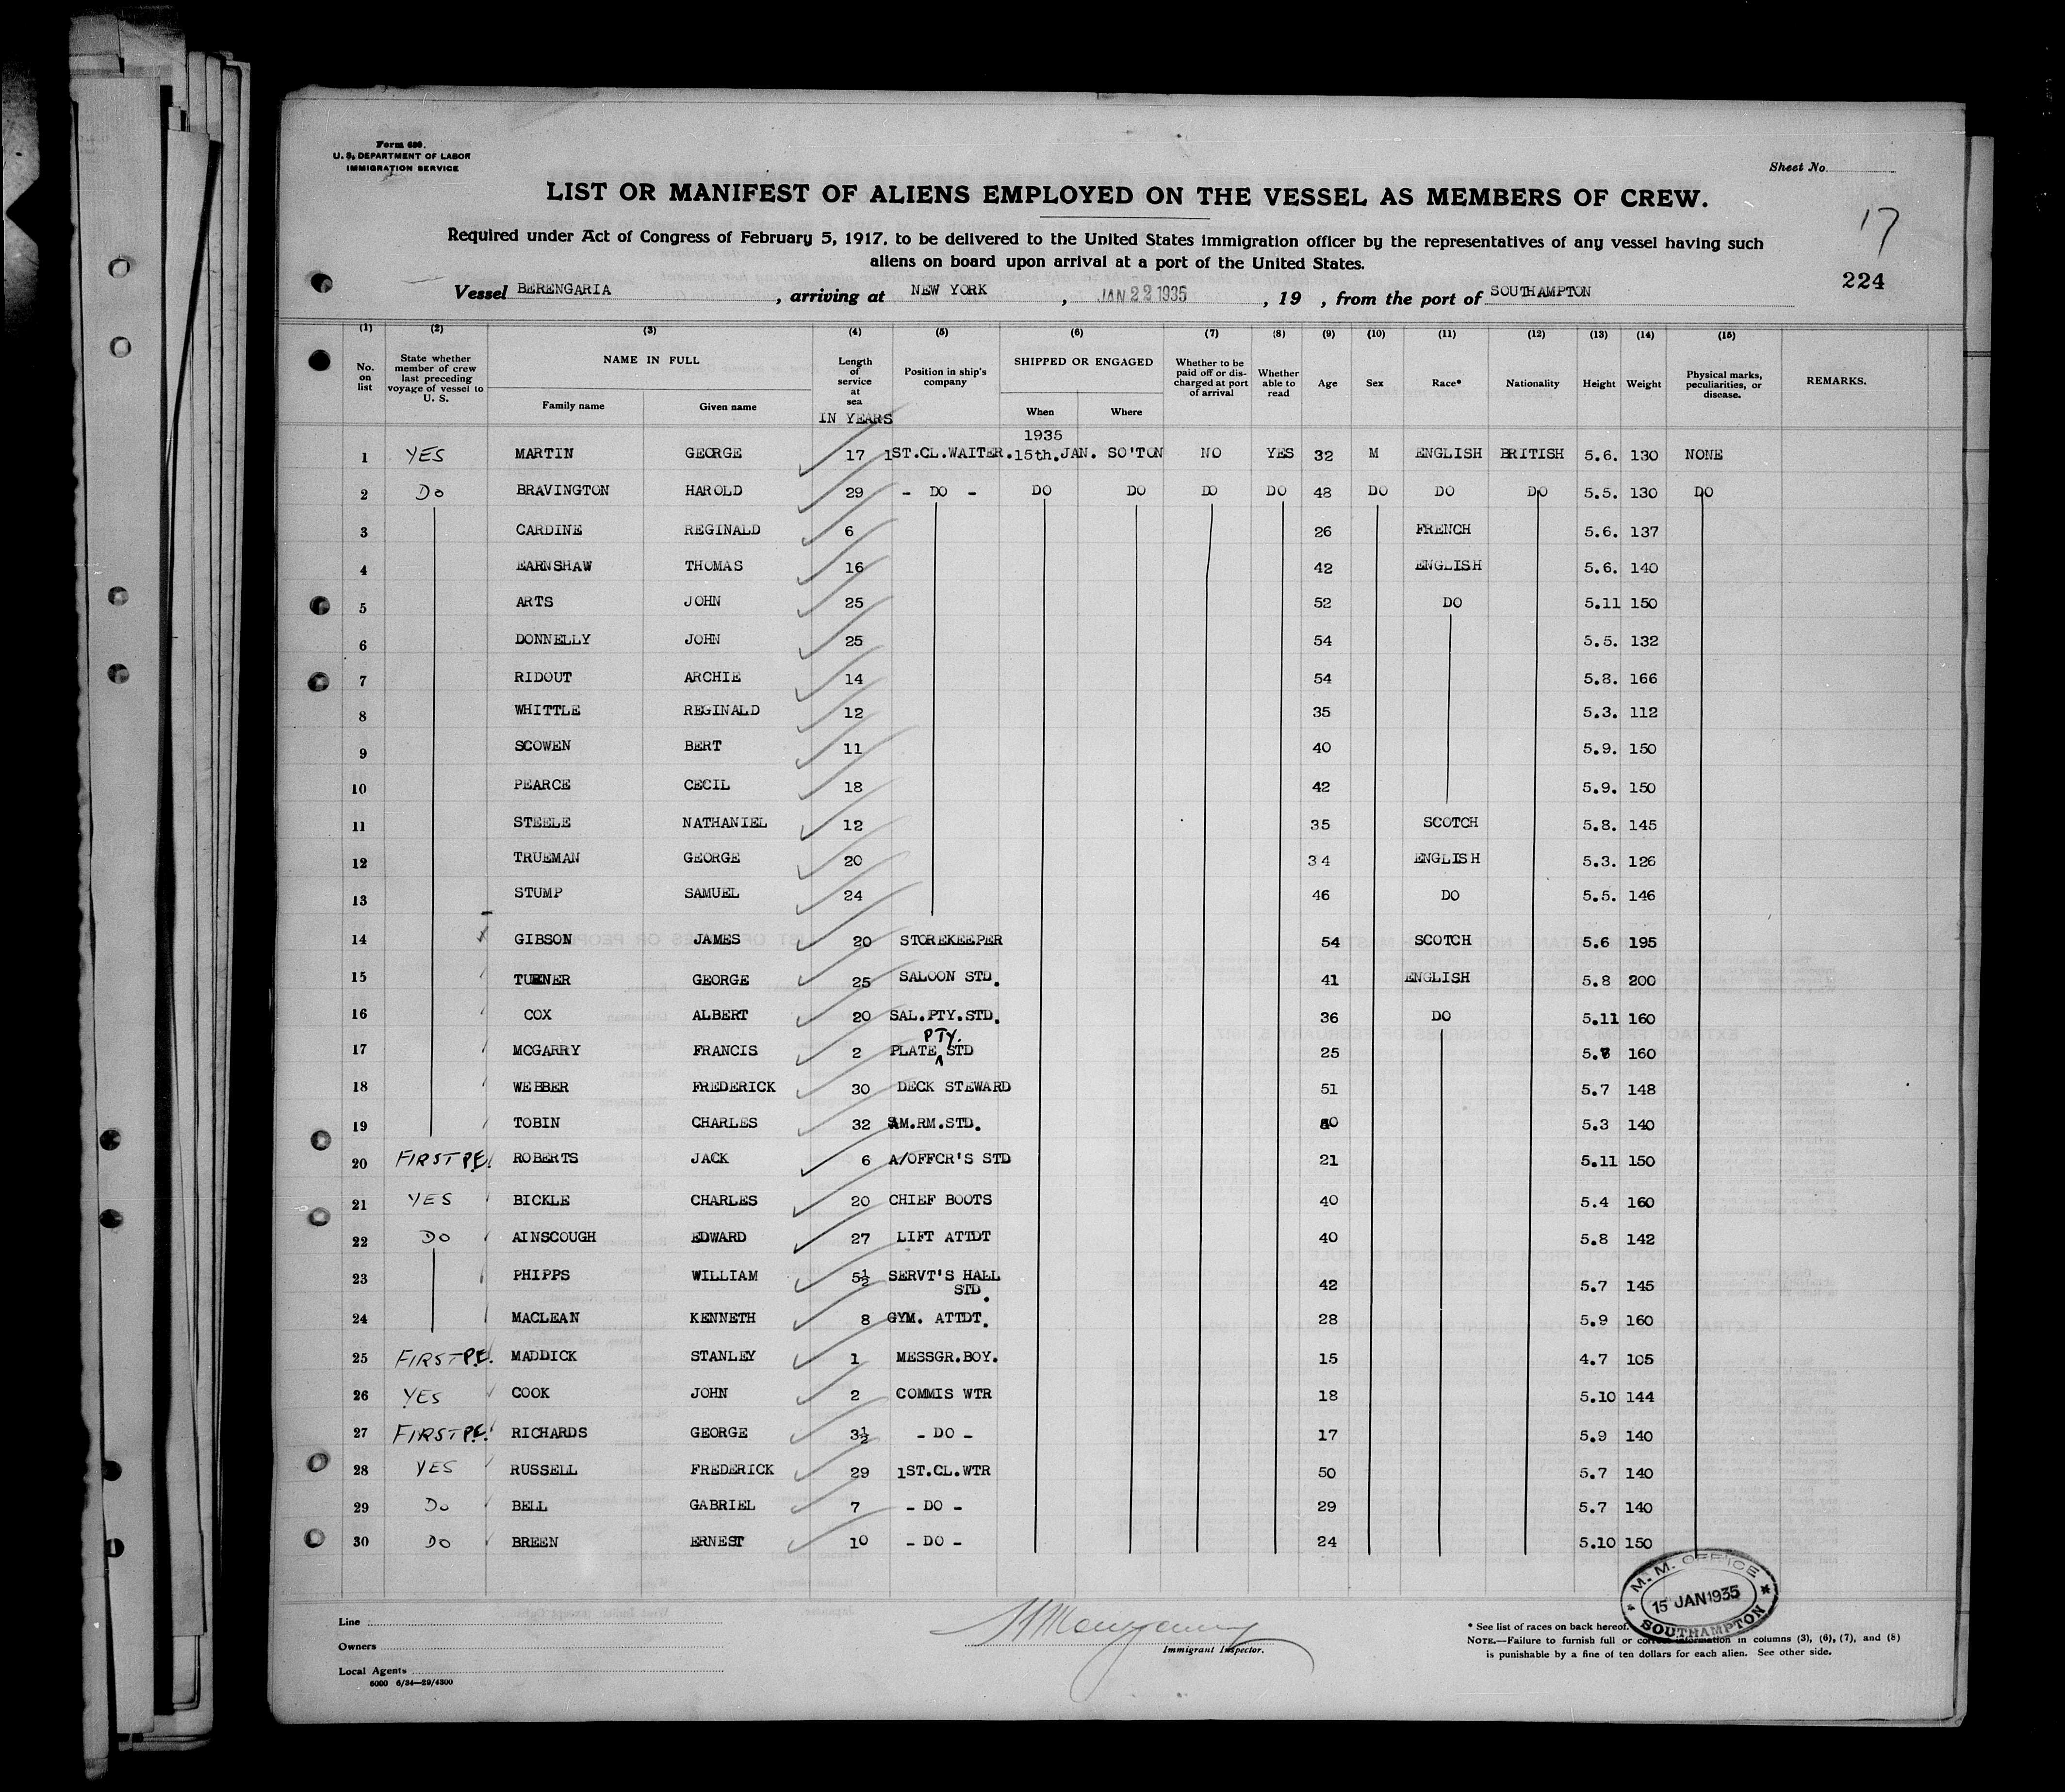 Form 680.
U. S. DEPARTMENT OF LABOR
IMMIGRATION SERVICE
Sheet No.
LIST OR MANIFEST OF ALIENS EMPLOYED ON THE VESSEL AS MEMBERS OF CREW.
17
Required under Act of Congress of February 5, 1917, to be delivered to the United States immigration officer by the representatives of any vessel having such
aliens on board upon arrival at a port of the United States.
224
Vessel BERENGARIA, arriving at NEW YORK, JAN 22 1935, 19 , from the port of SOUTHAMPTON
(1) (2) (3) (4) (5) (6) (7) (8) (9) (10) (11) (12) (13) (14) (15)
No. on list State whether member of crew last preceding voyage of vessel to U. S. NAME IN FULL Family name Given name Length of service at sea IN YEARS Position in ship's company SHIPPED OR ENGAGED When Where Whether to be paid off or discharged at port of arrival Whether able to read Age Sex Race* Nationality Height Weight Physical marks, peculiarities, or disease. REMARKS.
1935
1 YES MARTIN GEORGE 17 1ST.CL.WAITER. 15th.JAN. SO'TON NO YES 32 M ENGLISH BRITISH 5.6. 130 NONE
2 DO BRAVINGTON HAROLD 29 - DO - DO DO DO DO 48 DO DO DO 5.5. 130 DO
3 CARDINE REGINALD 6 26 FRENCH 5.6. 137
4 EARNSHAW THOMAS 16 42 ENGLISH 5.6. 140
5 ARTS JOHN 25 52 DO 5.11 150
6 DONNELLY JOHN 25 54 5.5. 132
7 RIDOUT ARCHIE 14 54 5.8. 166
8 WHITTLE REGINALD 12 35 5.3. 112
9 SCOWEN BERT 11 40 5.9. 150
10 PEARCE CECIL 18 42 5.9. 150
11 STEELE NATHANIEL 12 35 SCOTCH 5.8. 145
12 TRUEMAN GEORGE 20 34 ENGLISH 5.3. 126
13 STUMP SAMUEL 24 46 DO 5.5. 146
14 GIBSON JAMES 20 STOREKEEPER 54 SCOTCH 5.6 195
15 TURNER GEORGE 25 SALOON STD. 41 ENGLISH 5.8 200
16 COX ALBERT 20 SAL.PTY.STD. 36 DO 5.11 160
17 MCGARRY FRANCIS 2 PLATE PTY. STD 25 5.8 160
18 WEBBER FREDERICK 30 DECK STEWARD 51 5.7 148
19 TOBIN CHARLES 32 SM.RM.STD. 5.3 140
20 FIRST P.E. ROBERTS JACK 6 A/OFFCR'S STD 21 5.11 150
21 YES BICKLE CHARLES 20 CHIEF BOOTS 40 5.4 160
22 DO AINSCOUGH EDWARD 27 LIFT ATTDT 40 5.8 142
23 PHIPPS WILLIAM 5½ SERVT'S HALL STD. 42 5.7 145
24 MACLEAN KENNETH 8 GYM. ATTDT. 28 5.9 160
25 FIRST P.E. MADDICK STANLEY 1 MESSGR.BOY. 15 4.7 105
26 YES COOK JOHN 2 COMMIS WTR 18 5.10 144
27 FIRST P.E. RICHARDS GEORGE 3½ - DO - 17 5.9 140
28 YES RUSSELL FREDERICK 29 1ST.CL.WTR 50 5.7 140
29 Do BELL GABRIEL 7 - DO - 29 5.7 140
30 DO BREEN ERNEST 10 - DO - 24 5.10 150
M. M. OFFICE
15 JAN 1935
SOUTHAMPTON
Line
Owners
Local Agents
6000 6/34—29/4300
Immigrant Inspector.
* See list of races on back hereof.
NOTE.—Failure to furnish full or correct information in columns (3), (6), (7), and (8)
is punishable by a fine of ten dollars for each alien. See other side.